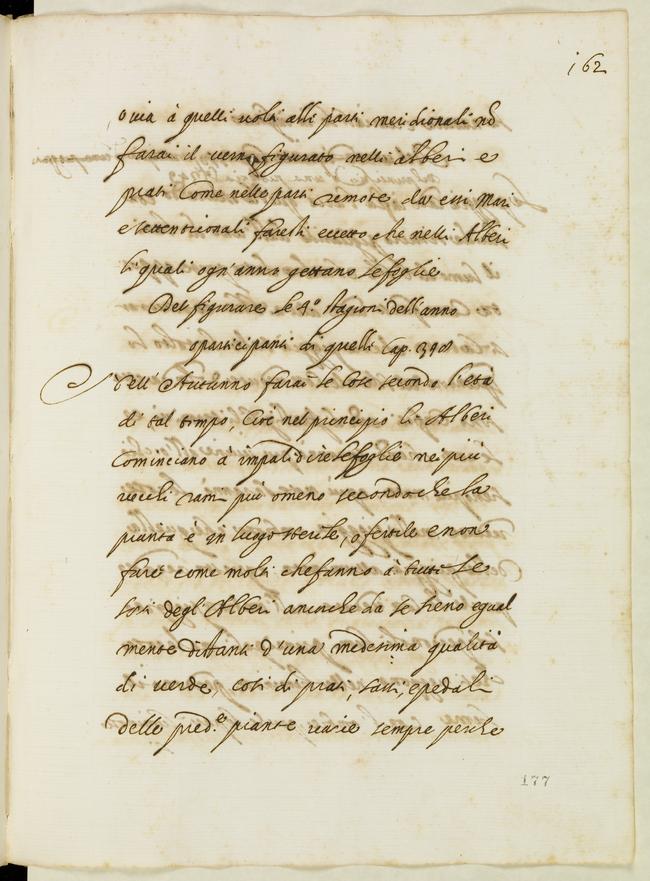 162
o via à quelli volti alli parti meridionali nõ
farai il verno figurato nelli alberi e
prati Come nelle parti remote da essi Mari
e settentrionali faresti eccetto che nelli Alberi
li quali ogn'anno gettano le foglie
Del figurare le 4.º stagioni dell'anno
o participanti di quelli Cap. 348
Nell'Autunno farai le Cose secondo l'età
di tal tempo, Cioè nel principio li Alberi
Cominciano à impalidire le foglie nei più
vecchi rami più o meno secondo che la
pianta è in luogo sterile, o fertile e non
fare come molti che fanno à tutte le
sorti degl'Alberi ancorche da se sieno egual
mente distanti d'una medesima qualità
di verde, così di prati, sassi, e pedali
delle pred.e piante varie sempre perche
177